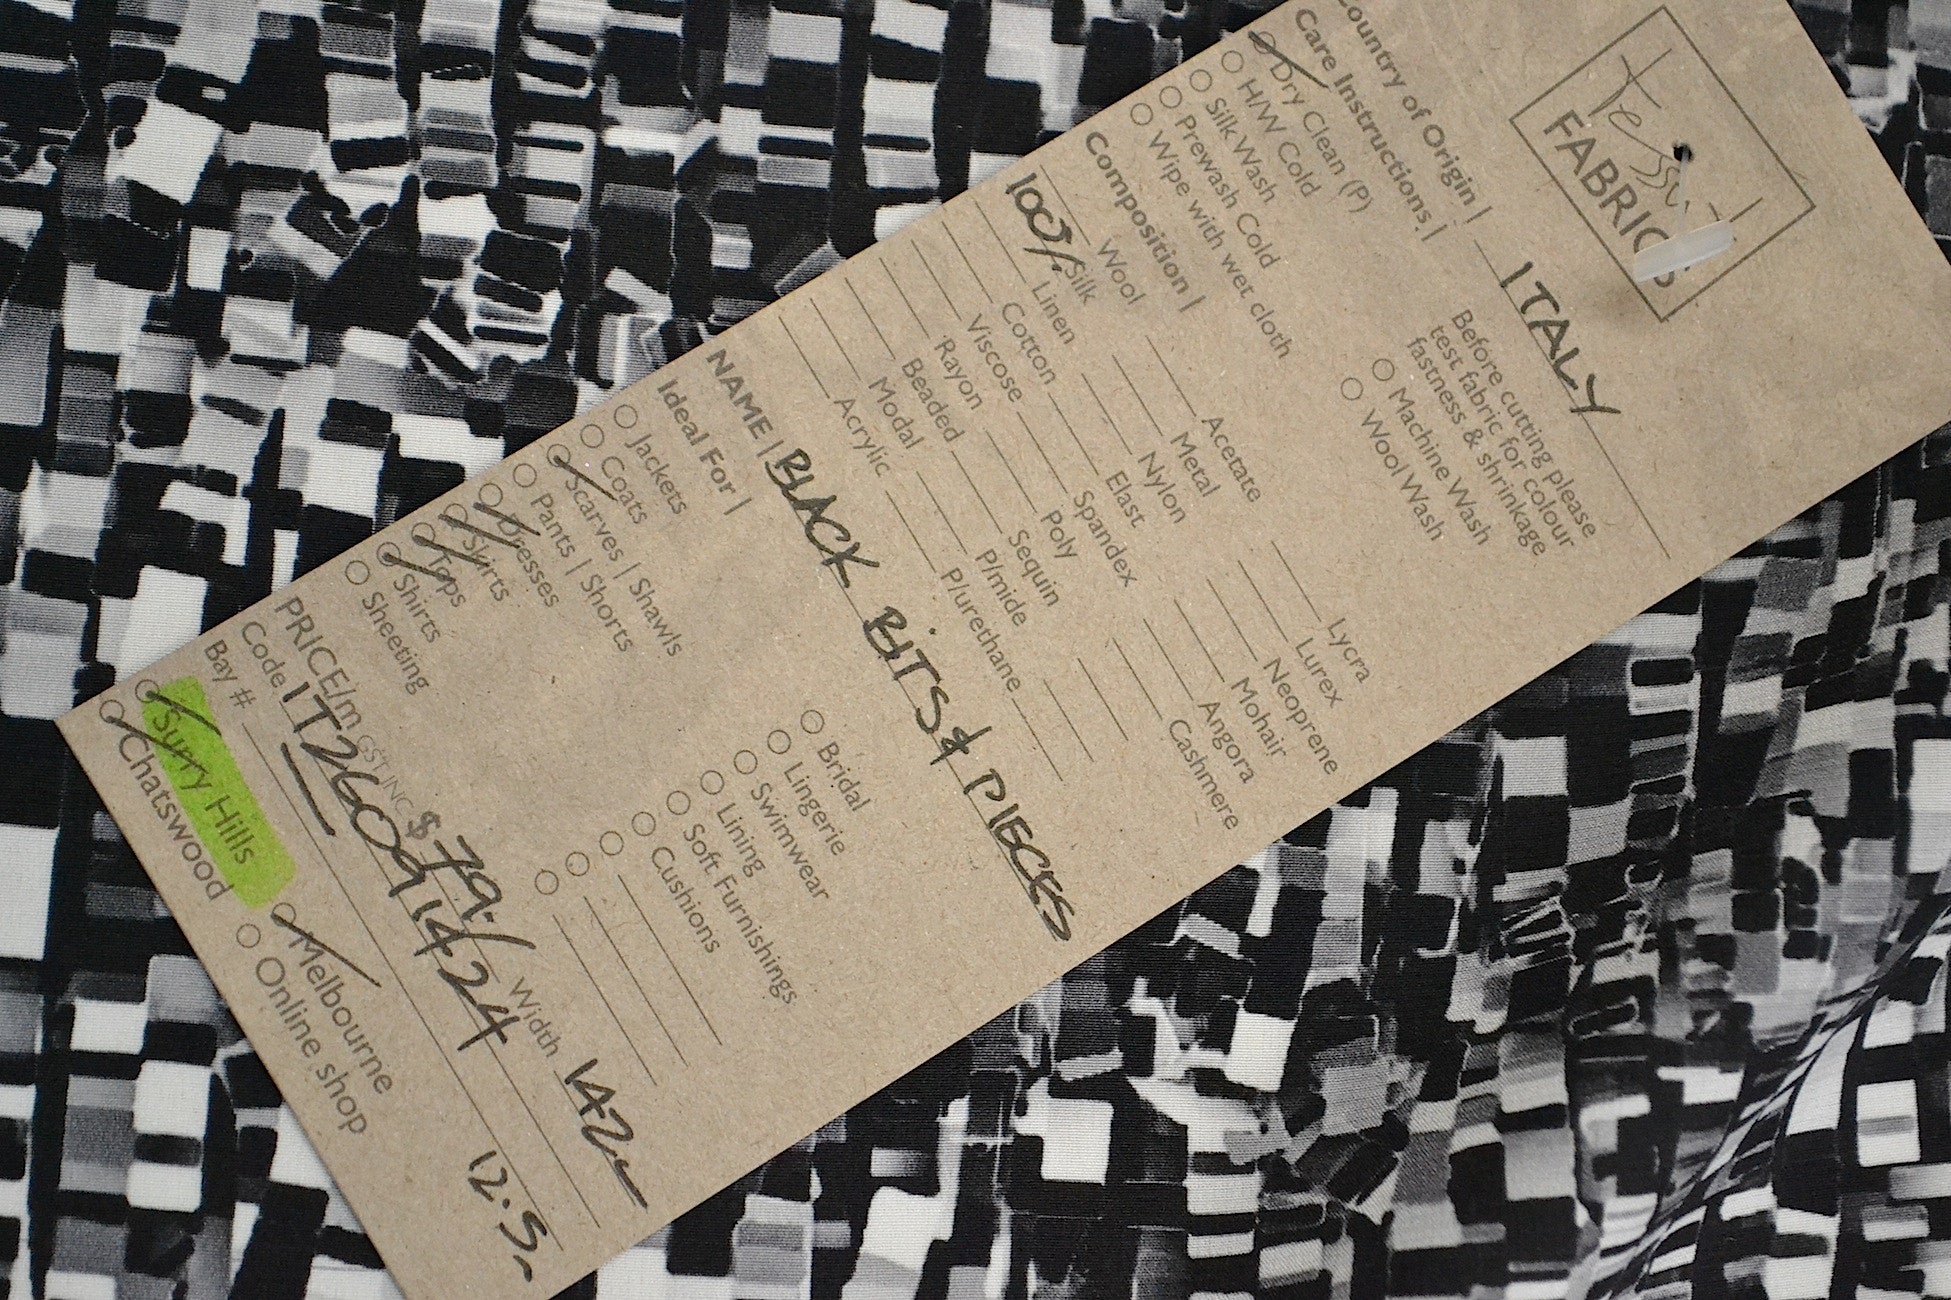 Tessuti
FABRICS
Country of Origin | ITALY
Care Instructions |
Dry Clean (P)
H/W Cold
Silk Wash
Prewash Cold
Wipe with wet cloth
Before cutting please
test fabric for colour
fastness & shrinkage
Machine Wash
Wool Wash
Composition |
Wool
100% Silk
Linen
Cotton
Viscose
Rayon
Beaded
Modal
Acrylic
Acetate
Metal
Nylon
Elast
Spandex
Poly
Sequin
P/mide
P/urethane
Lycra
Lurex
Neoprene
Mohair
Angora
Cashmere
NAME | BLACK BITS & PIECES
Ideal For |
Jackets
Coats
Scarves | Shawls
Pants | Shorts
Dresses
Skirts
Tops
Shirts
Sheeting
Bridal
Lingerie
Swimwear
Lining
Soft Furnishings
Cushions
PRICE/m GST INC $ 79.- Width 142
Code IT26091424
Bay # 12.5
Surry Hills
Chatswood
Melbourne
Online shop